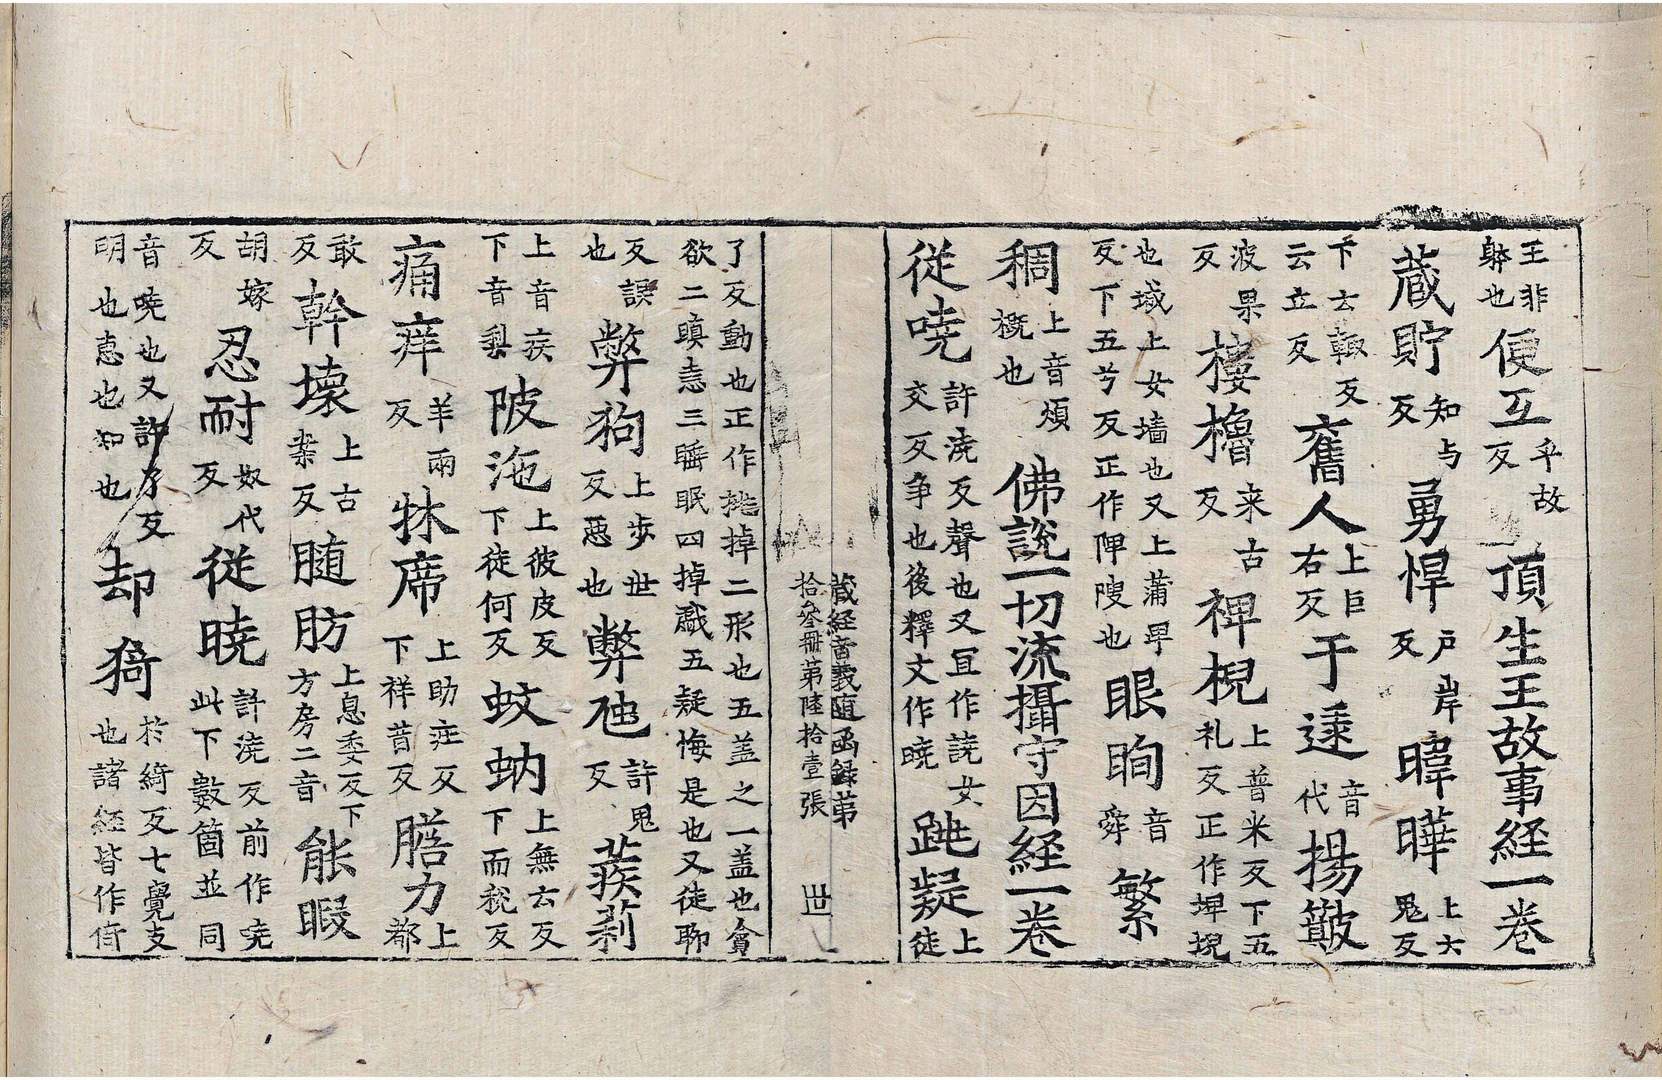 王非躰也便互乎故反頂生王故事経一卷
蔵貯知与反勇悍户岸反暐曄上大鬼反
下去輙反云立反舊人上巨右反于逶音代揚簸
波果反樓櫓来古反裨棿上普米反下五礼反正作埤堄
也域上女墙也又上蒲早反下五兮反正作陴䁬也眼眴音舜繁
稠上音煩概也佛說一切流攝守因経一卷
従哓許澆反聲也又冝作譊女交反争也後釋文作曉跳凝上徒
蔵経音義随函録苐
拾叁冊第陸拾壹張世
了反動也正作挑掉二形也五盖之一盖也貪欲二瞋恚三睡眠四掉戲五疑悔是也又徒聊
反誤也弊狗上步世反惡也弊虵許鬼反蒺莿
上音疾下音梨陂池上彼皮反下徒何反蚊蚋上無云反下而稅反
痛痒羊兩反牀席上助庄反下祥昔反膽力上都
敢反幹壊上古案反髄肪上息委反下方房二音能暇
胡嫁反忍耐奴代反従曉許澆反前作哓此下數箇並同
音哓也又許了反明也恚也知也却猗於綺反七覺支也諸経皆作倚